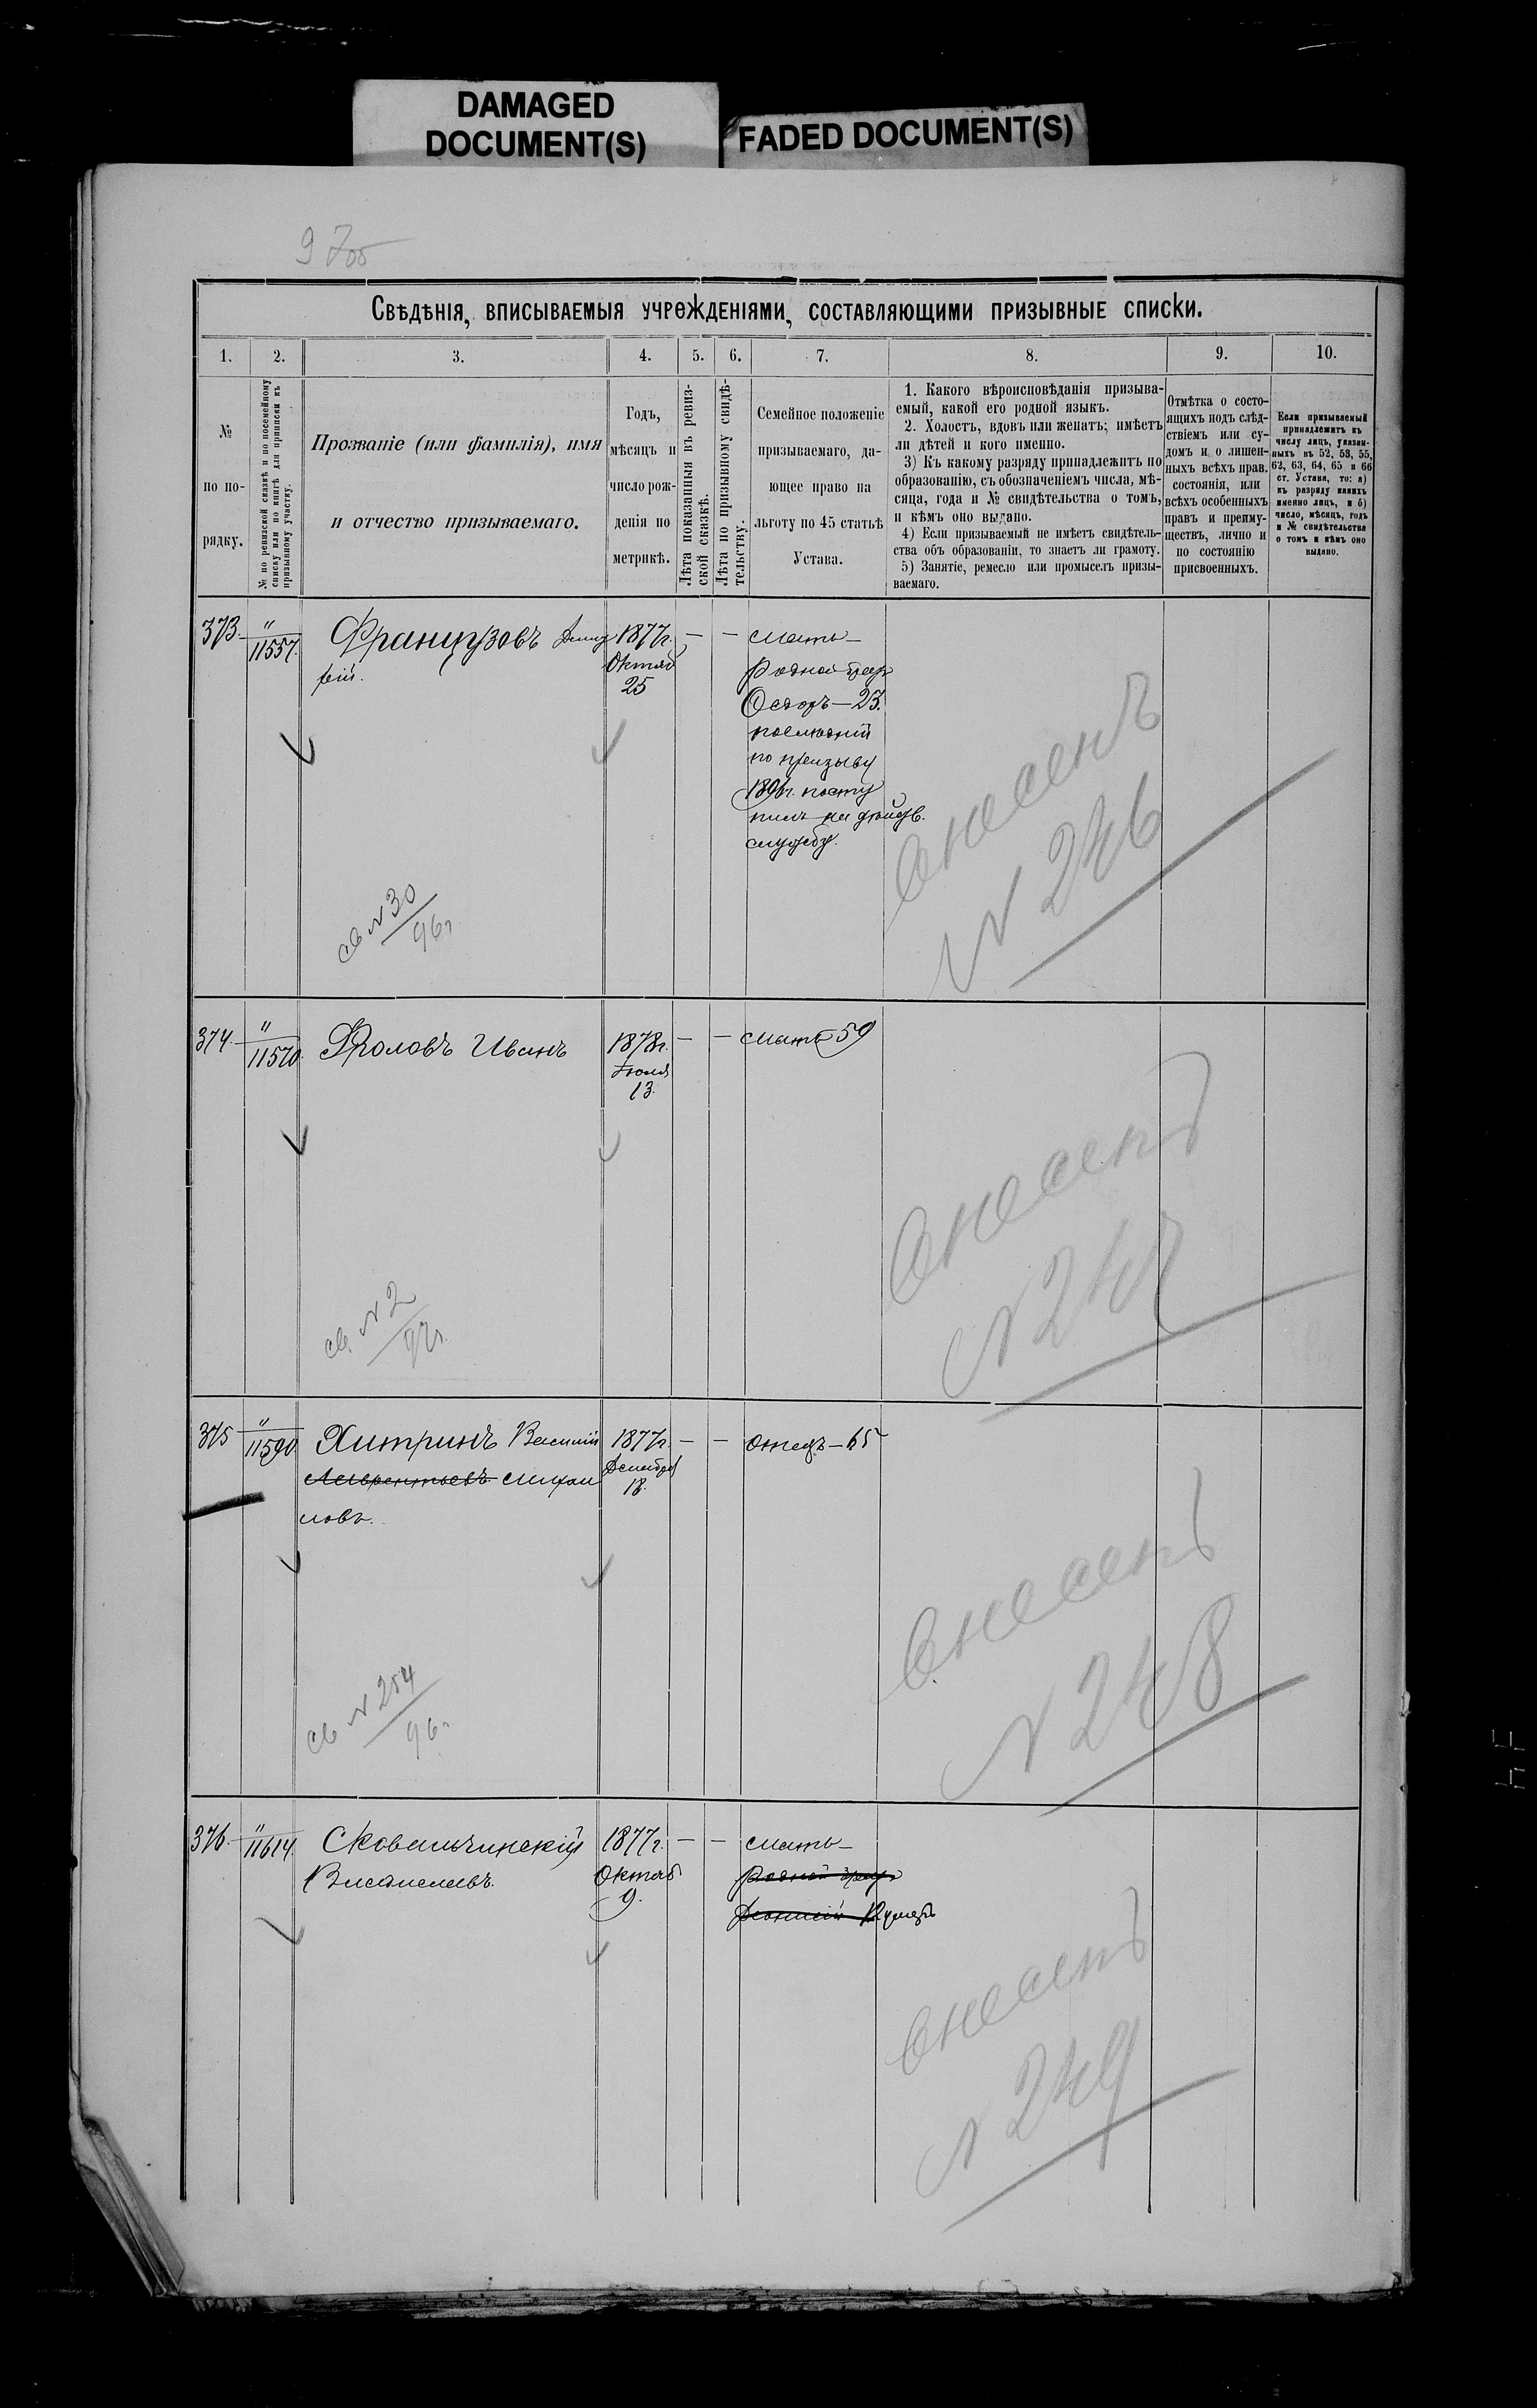 DAMAGED
DOCUMENT(S)
FADED DOCUMENT(S)
Свѣдѣнія, вписываемыя учрежденіями, составляющими призывные списки.
1. 2. 3. 4. 5. 6. 7. 8. 9. 10.
№
по по-
рядку.
№ по ревизской сказкѣ и по посемейному
списку или по книгѣ для приписки къ
призывному участку.
Прозваніе (или фамилія), имя
и отчество призываемаго.
Годъ,
мѣсяцъ и
число рож-
денія по
метрикѣ.
Лѣта показанныя въ ревиз-
ской сказкѣ.
Лѣта по призывному свидѣ-
тельству.
Семейное положеніе
призываемаго, да-
ющее право на
льготу по 45 статьѣ
Устава.
1. Какого вѣроисповѣданія призыва-
емый, какой его родной языкъ.
2. Холостъ, вдовъ или женатъ; имѣетъ
ли дѣтей и кого именно.
3) Къ какому разряду принадлежитъ по
образованію, съ обозначеніемъ числа, мѣ-
сяца, года и № свидѣтельства о томъ,
и кѣмъ оно выдано.
4) Если призываемый не имѣетъ свидѣтель-
ства объ образованіи, то знаетъ ли грамоту.
5) Занятіе, ремесло или промыселъ призы-
ваемаго.
Отмѣтка о состо-
ящихъ подъ слѣд-
ствіемъ или су-
домъ и о лишен-
ныхъ всѣхъ прав.
состоянія, или
всѣхъ особенныхъ
правъ и преиму-
ществъ, лично и
по состоянію
присвоенныхъ.
Если призываемый
принадлежитъ къ
числу лицъ, указан-
ныхъ въ 52, 53, 55,
62, 63, 64, 65 и 66
ст. Устава, то: а)
къ разряду какихъ
именно лицъ, и б)
число, мѣсяцъ, годъ
и № свидѣтельства
о томъ и кѣмъ оно
выдано.
373. " 11557. Французовъ
1877г.
Октяб
25
— — мать —
родной
Ѳедоръ — 23.
послѣдній
по призыву
1896г. посту
пилъ на дѣйств.
службу.
св №30
96г
внесенъ
№ 246
374. " 11570. Фроловъ Иванъ
1878г.
Іюля
13.
— — мать 59
св. №2
97г.
внесенъ
№ 247
375 " 11590. Хитринъ Василій
Лаврентьевъ Михаи
ловъ.
1877г.
Декабря
18.
— — отецъ — 65
св № 254
96г
внесенъ
№ 248
376. " 11614. Сковальчинскій
Владиславъ.
1877г.
Октяб
9.
— — мать —
родной
внесенъ
№ 249